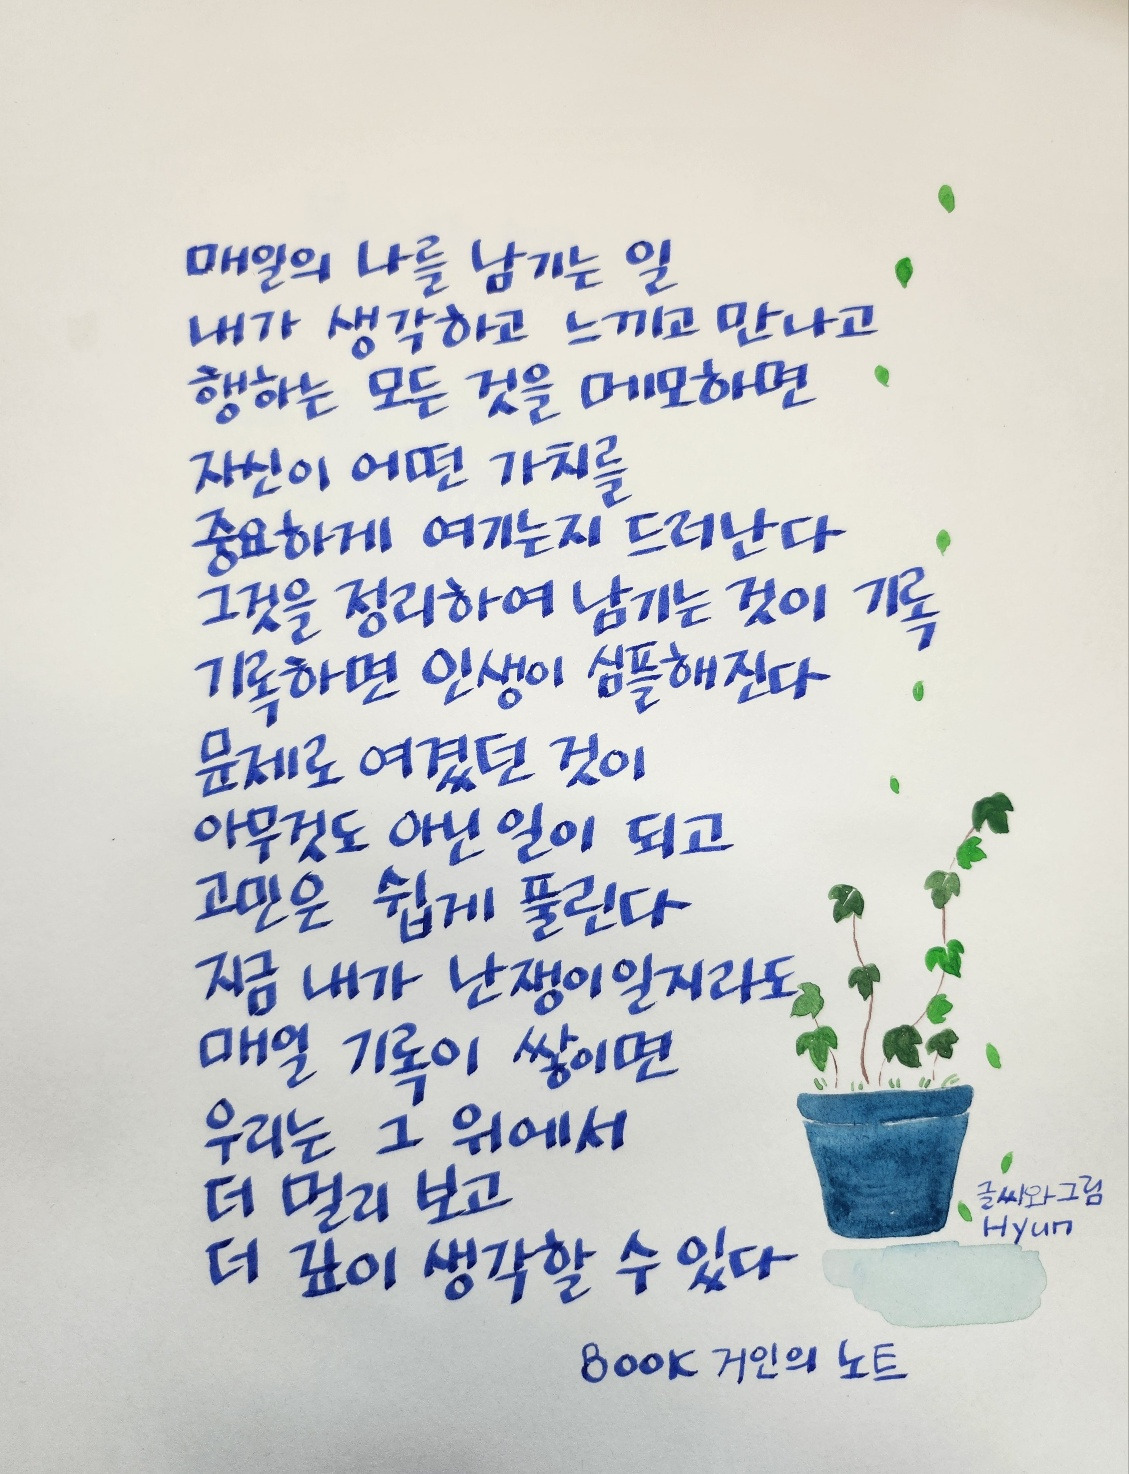 매일의 나를 남기는 일
내가 생각하고 느끼고 만나고
행하는 모든 것을 메모하면
자신이 어떤 가치를
중요하게 여기는지 드러난다
그것을 정리하여 남기는 것이 기록
기록하면 인생이 심플해진다
문제로 여겼던 것이
아무것도 아닌 일이 되고
고민은 쉽게 풀린다
지금 내가 난쟁이일지라도
매일 기록이 쌓이면
우리는 그 위에서
더 멀리 보고
더 깊이 생각할 수 있다
글씨와그림
Hyun
BOOK 거인의 노트